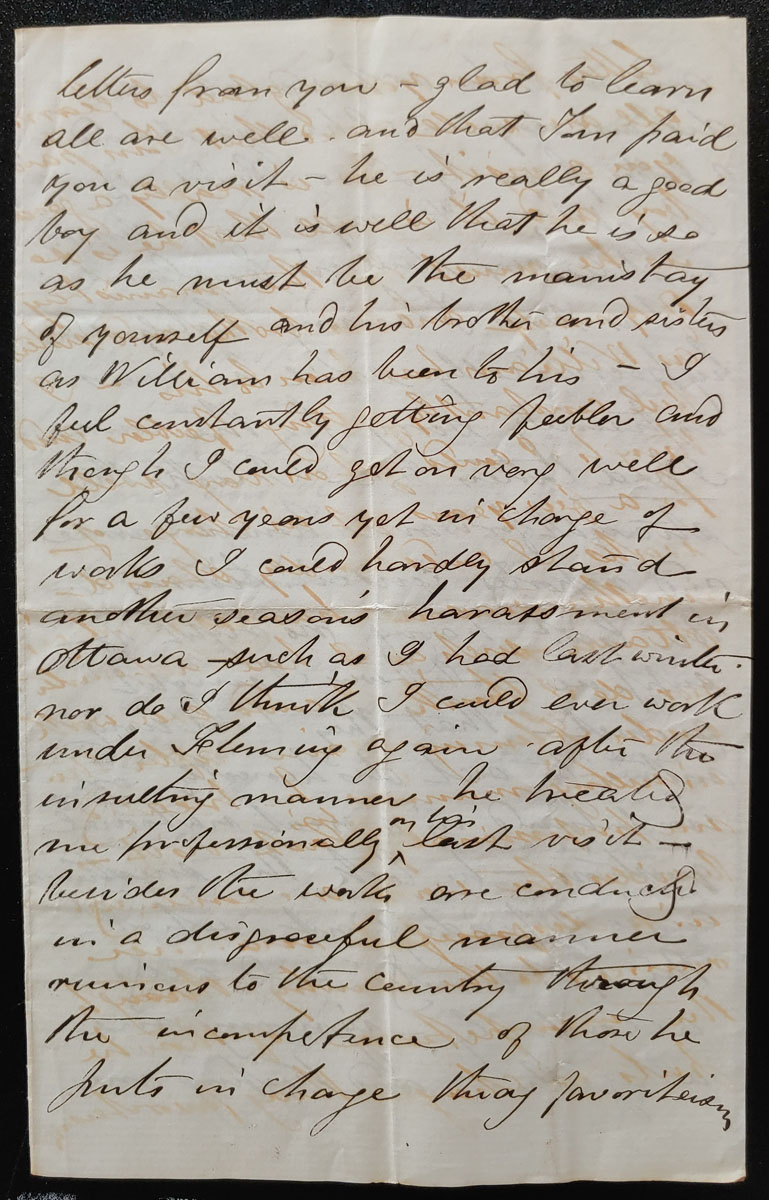 letters from you - glad to learn
all are well. and that Tom paid
you a visit - he is really a good
boy and it is well that he is so
as he must be the mainstay
of yourself and his brother and sisters
as William has been to his - I
feel constantly getting feebler and
though I could get on very well
for a few years yet in charge of
works I could hardly stand
another season's harassment in
Ottawa - such as I had last winter.
nor do I think I could ever work
under Fleming again after the
insulting manner he treated
me professionally on his last visit -
besides the works are conducted
in a disgraceful manner
ruinous to the country through
the incompetence of those he
puts in charge thro favoriteism